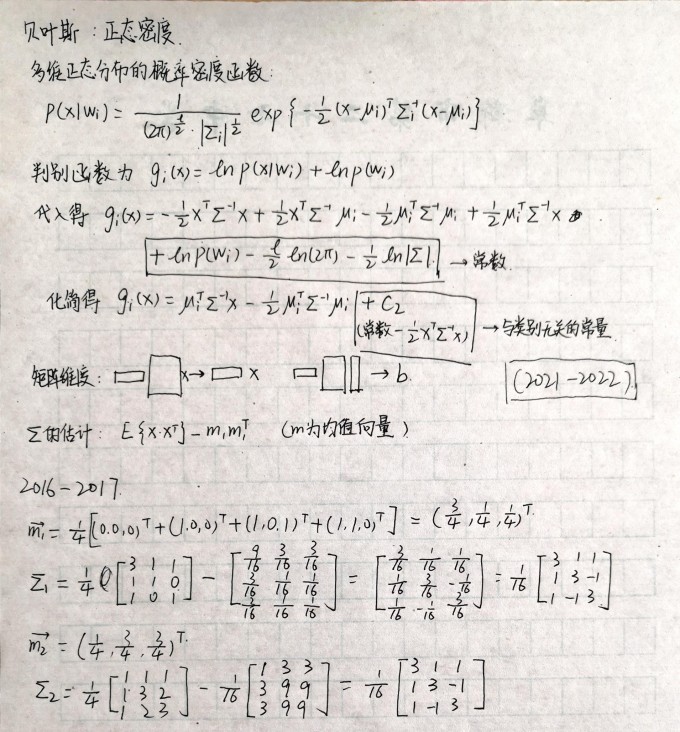 贝叶斯：正态密度.
多维正态分布的概率密度函数:
P(x|wᵢ) = 1/((2π)^(ℓ/2)·|Σᵢ|^(1/2)) exp{-1/2(x-μᵢ)ᵀΣᵢ⁻¹(x-μᵢ)}
判别函数为 gᵢ(x) = ln p(x|wᵢ) + ln p(wᵢ)
代入得 gᵢ(x) = -1/2 xᵀΣ⁻¹x + 1/2 xᵀΣ⁻¹μᵢ - 1/2 μᵢᵀΣ⁻¹μᵢ + 1/2 μᵢᵀΣ⁻¹x
+ ln P(wᵢ) - ℓ/2 ln(2π) - 1/2 ln|Σ|. → 常数.
化简得 gᵢ(x) = μᵢᵀΣ⁻¹x - 1/2 μᵢᵀΣ⁻¹μᵢ + C₂
(常数 - 1/2 xᵀΣ⁻¹x) → 与类别无关的常量
矩阵维度: x → x → b.
(2021-2022)
Σ的估计: E{x·xᵀ} - mᵢmᵢᵀ (m为均值向量)
2016-2017.
m₁ = 1/4[(0.0,0)ᵀ + (1.0,0)ᵀ + (1,0.1)ᵀ + (1,1,0)ᵀ] = (3/4, 1/4, 1/4)ᵀ.
Σ₁ = 1/4 [3 1 1; 1 1 0; 1 0 1] - [9/16 3/16 3/16; 3/16 1/16 1/16; 3/16 1/16 1/16] = [3/16 1/16 1/16; 1/16 3/16 -1/16; 1/16 -1/16 3/16] = 1/16 [3 1 1; 1 3 -1; 1 -1 3]
m₂ = (1/4, 3/4, 3/4)ᵀ.
Σ₂ = 1/4 [1 1 1; 1 3 2; 1 2 3] - 1/16 [1 3 3; 3 9 9; 3 9 9] = 1/16 [3 1 1; 1 3 -1; 1 -1 3]